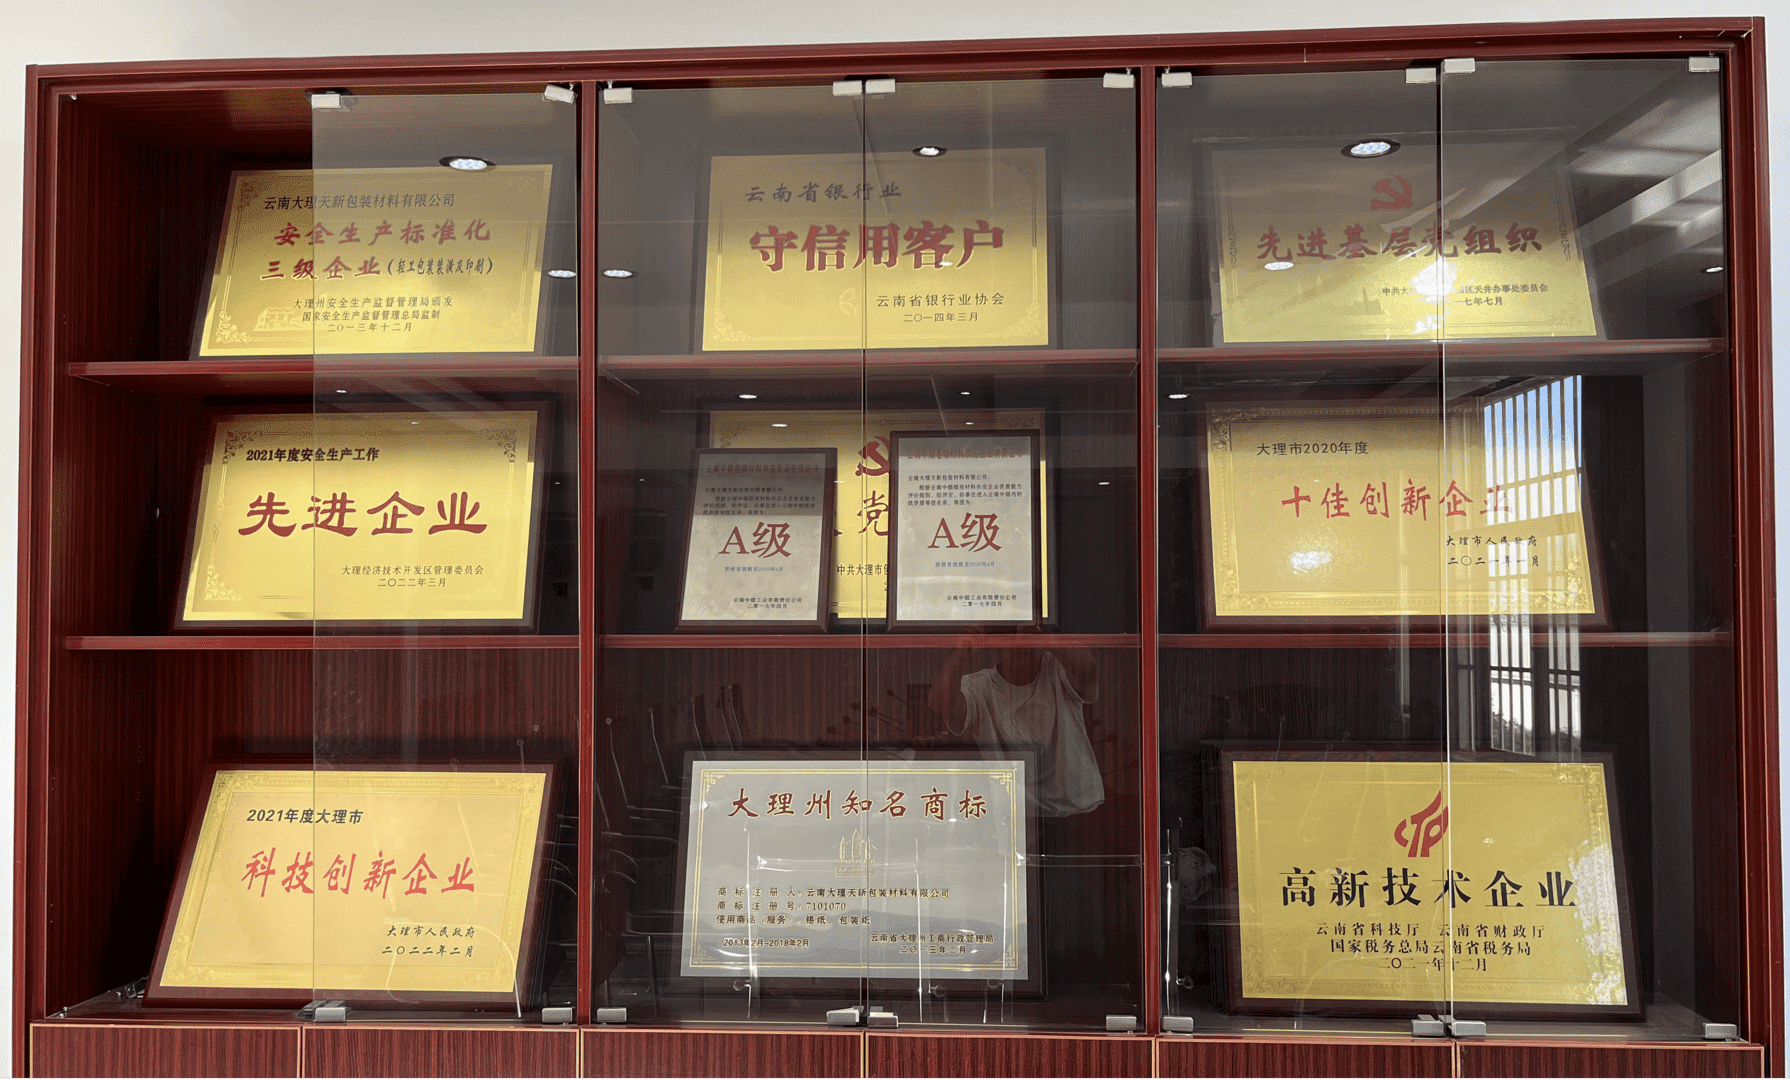 云南大理天新包装材料有限公司
安全生产标准化
三级企业(轻工包装装潢及印刷)
大理州安全生产监督管理局颁发
国家安全生产监督管理总局监制
二〇一三年十二月
云南省银行业
守信用客户
云南省银行业协会
二〇一四年三月
先进基层党组织
中共大
区天井办事处委员会
一七年七月
2021年度安全生产工作
先进企业
大理经济技术开发区管理委员会
二〇二二年三月
云南大理天新包装材料有限公司:
A级
云南中烟工业有限责任公司
二零一七年四月
党
中共大理市
云南大理天新包装材料有限公司:
A级
云南中烟工业有限责任公司
二零一七年四月
大理市2020年度
十佳创新企业
大理市人民政府
二〇二一年一月
2021年度大理市
科技创新企业
大理市人民政府
二〇二二年二月
大理州知名商标
商标注册人:云南大理天新包装材料有限公司
商标注册号:7101070
使用商品(服务):锡纸、包装纸
2013年2月-2018年2月
云南省大理州工商行政管理局
二〇一三年二月
高新技术企业
云南省科技厅 云南省财政厅
国家税务总局云南省税务局
二〇二一年十二月